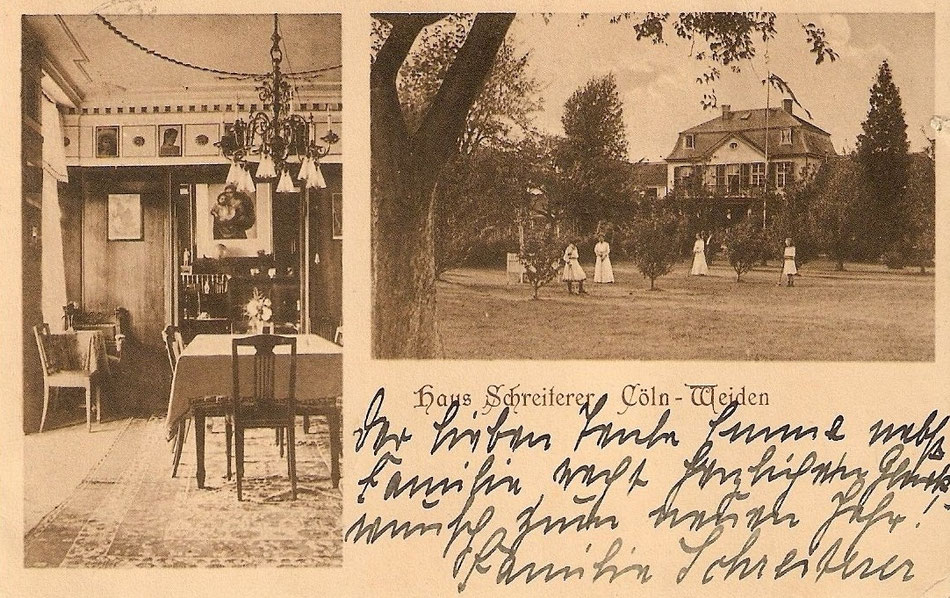 Haus Schreiterer Cöln-Weiden
Der lieben Tante Emma nebst
Familie recht herzlichen Glück-
wunsch zum neuen Jahr!
Familie Schreiterer